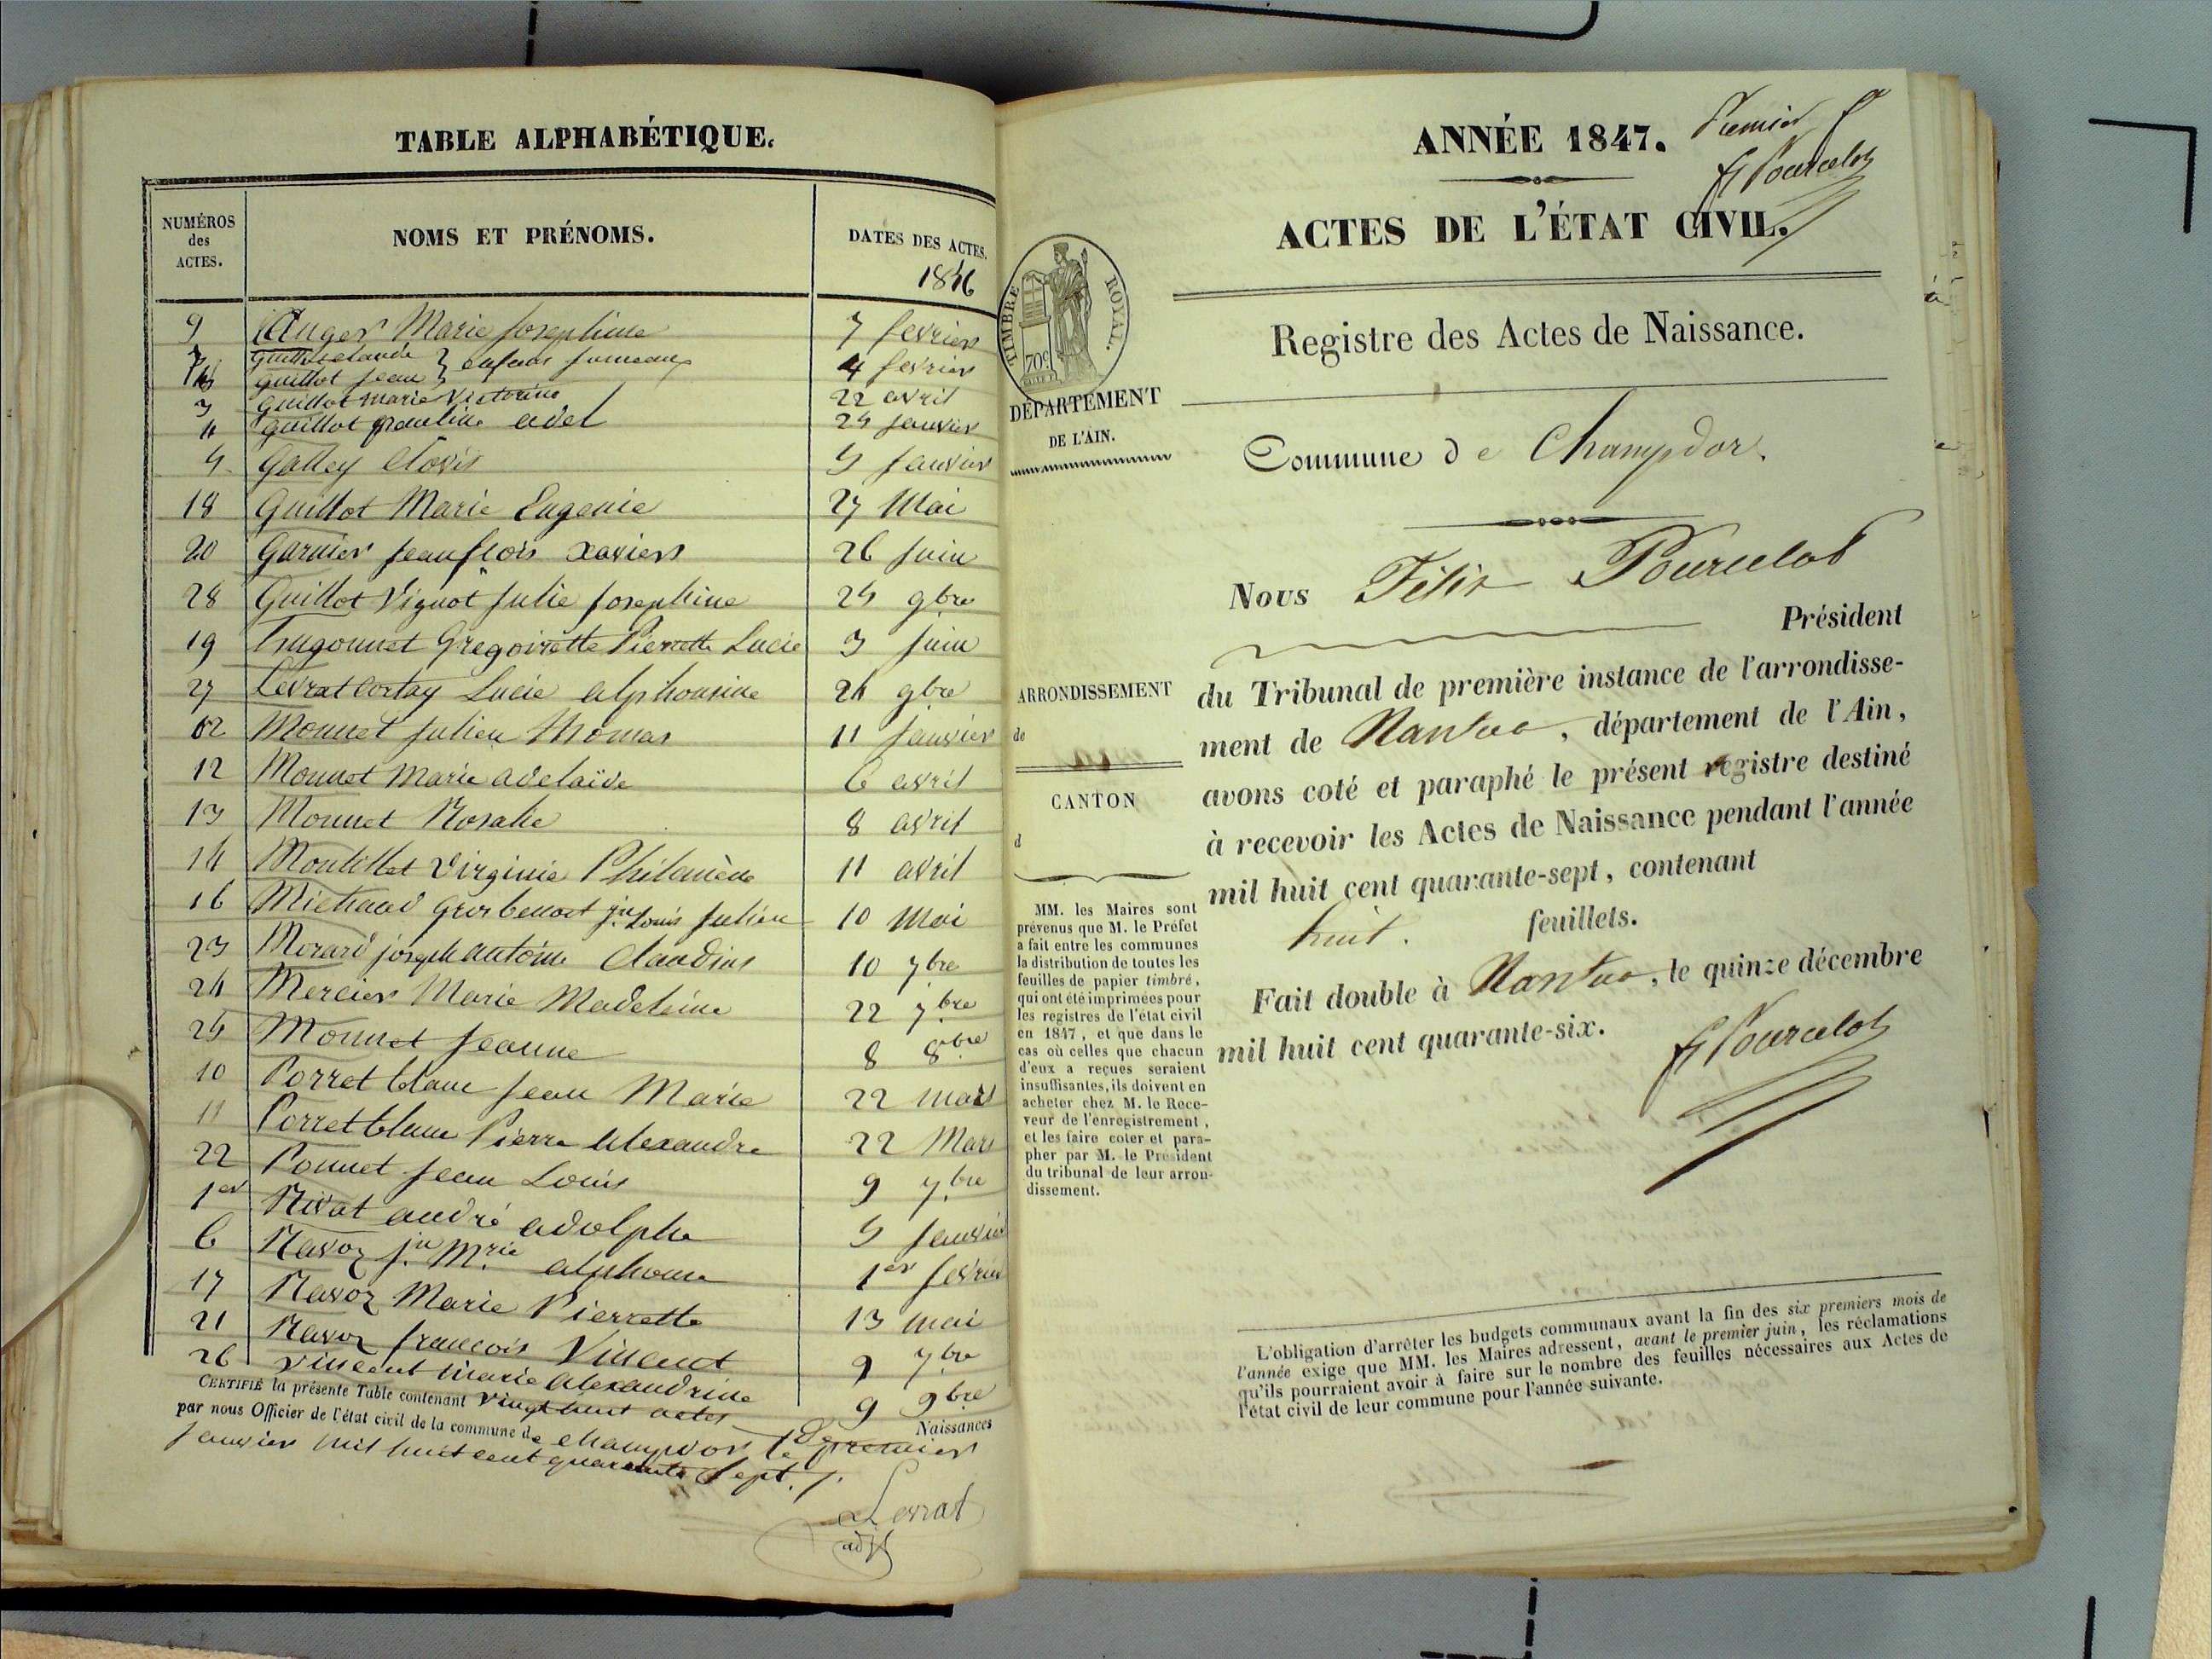 TABLE ALPHABÉTIQUE.
NUMÉROS des ACTES.
NOMS ET PRÉNOMS.
DATES DES ACTES.
1846
9 Anger Marie Josephine 7 fevrier
7 Guillot claude } enfans jumeaux
8 Guillot Jean 4 fevrier
Guillot Marie Victorine 22 avril
3 Guillot pauline adel 24 Janvier
4 Galley Clovis 5 Janvier
18 Guillot Marie Eugenie 27 Mai
20 Garnier Jean flois xaviers 26 Juin
28 Guillot Vignot Julie Josephine 25 9bre
19 hugonnet Gregoirette Pierrette Lucie 3 Juin
27 Levrat Cortay Lucie alphonsine 24 9bre
02 Monnet Julien thomas 11 Janvier
12 Monnet Marie adelaïde 6 avril
13 Monnet Rosalie 8 avril
14 Montillet Virginie Philomène 11 avril
16 Michaud Gros benoit jn Louis Julien 10 Mai
23 Morard joseph antoine Claudius 10 7bre
24 Mercier Marie Madeleine 22 7bre
25 Monnet Jeanne 8 8bre
10 Porret blanc Jean Marie 22 mars
11 Porret blanc Pierre Alexandre 22 Mars
22 Ponnet Jean Louis 9 7bre
1er Rivat andré adolphe 5 Janvier
6 Ravoz jn Mrie alphonse 1er fevrier
17 Ravoz Marie Pierrette 13 mai
21 Ravoz françois Vincent 2 7bre
26 Vincent Marie Alexandrine 9 9bre
CERTIFIÉ la présente Table contenant Vingt huit actes de Naissances
par nous Officier de l'état civil de la commune de champdor le premier
Janvier mil huit cent quarante Sept.
Levrat
adjt
ANNÉE 1847.
Premier
F Pourcelot
ACTES DE L'ÉTAT CIVIL.
TIMBRE ROYAL.
70c
Registre des Actes de Naissance.
DÉPARTEMENT
DE L'AIN.
Commune de Champdor.
Nous Félix Pourcelot
Président
du Tribunal de première instance de l'arrondisse-
ment de Nantua, département de l'Ain,
avons coté et paraphé le présent registre destiné
à recevoir les Actes de Naissance pendant l'année
mil huit cent quarante-sept, contenant
huit. feuillets.
Fait double à Nantua, le quinze décembre
mil huit cent quarante-six.
F Pourcelot
ARRONDISSEMENT
de
CANTON
d
MM. les Maires sont
prévenus que M. le Préfet
a fait entre les communes
la distribution de toutes les
feuilles de papier timbré,
qui ont été imprimées pour
les registres de l'état civil
en 1847, et que dans le
cas où celles que chacun
d'eux a reçues seraient
insuffisantes, ils doivent en
acheter chez M. le Rece-
veur de l'enregistrement,
et les faire coter et para-
pher par M. le Président
du tribunal de leur arron-
dissement.
L'obligation d'arrêter les budgets communaux avant la fin des six premiers mois de
l'année exige que MM. les Maires adressent, avant le premier juin, les réclamations
qu'ils pourraient avoir à faire sur le nombre des feuilles nécessaires aux Actes de
l'état civil de leur commune pour l'année suivante.